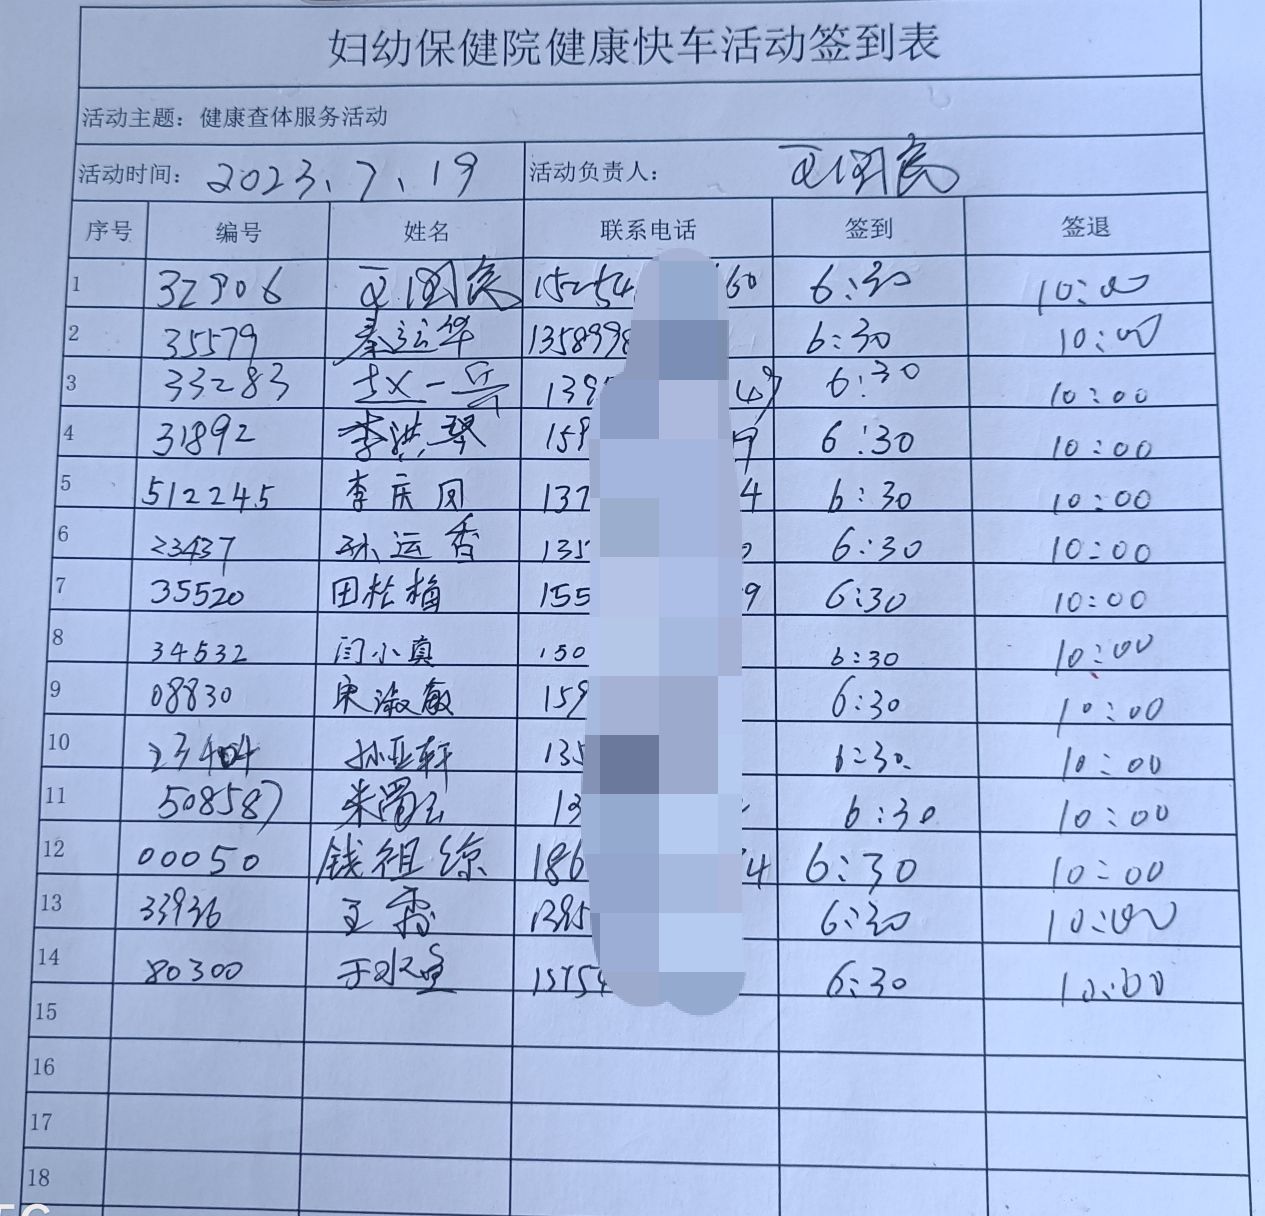 妇幼保健院健康快车活动签到表
活动主题：健康查体服务活动
活动时间：2023.7.19 活动负责人：王国民
序号 编号 姓名 联系电话 签到 签退
1 32906 王国民 15254 60 6:30 10:00
2 35579 秦运华 1358998 6:30 10:00
3 33283 赵一兵 139 49 6:30 10:00
4 31892 李洪琴 159 9 6:30 10:00
5 512245 李庆凤 137 4 6:30 10:00
6 23437 孙运香 135 6:30 10:00
7 35520 田松梅 155 9 6:30 10:00
8 34532 闫小真 150 6:30 10:00
9 08830 宋淑敏 159 6:30 10:00
10 23404 孙亚轩 135 6:30 10:00
11 508587 13 6:30 10:00
12 00050 钱祖琼 186 4 6:30 10:00
13 33936 王霞 1395 6:30 10:00
14 80300 15754 6:30 10:00
15
16
17
18